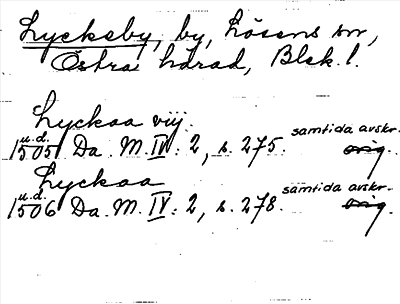 Lyckeby, by, Lösens sn,
Östra härad, Blek. l.
Lyckaa vij.
u.d. samtida avskr.
1505 Da. M. IV: 2, s. 275. orig.
Lyckaa
u.d. samtida avskr.
1506 Da. M. IV: 2, s. 278. orig.